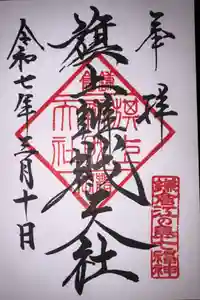 奉拝
旗上辨戝天社
令和七年三月十日
鎌倉江の島七福神